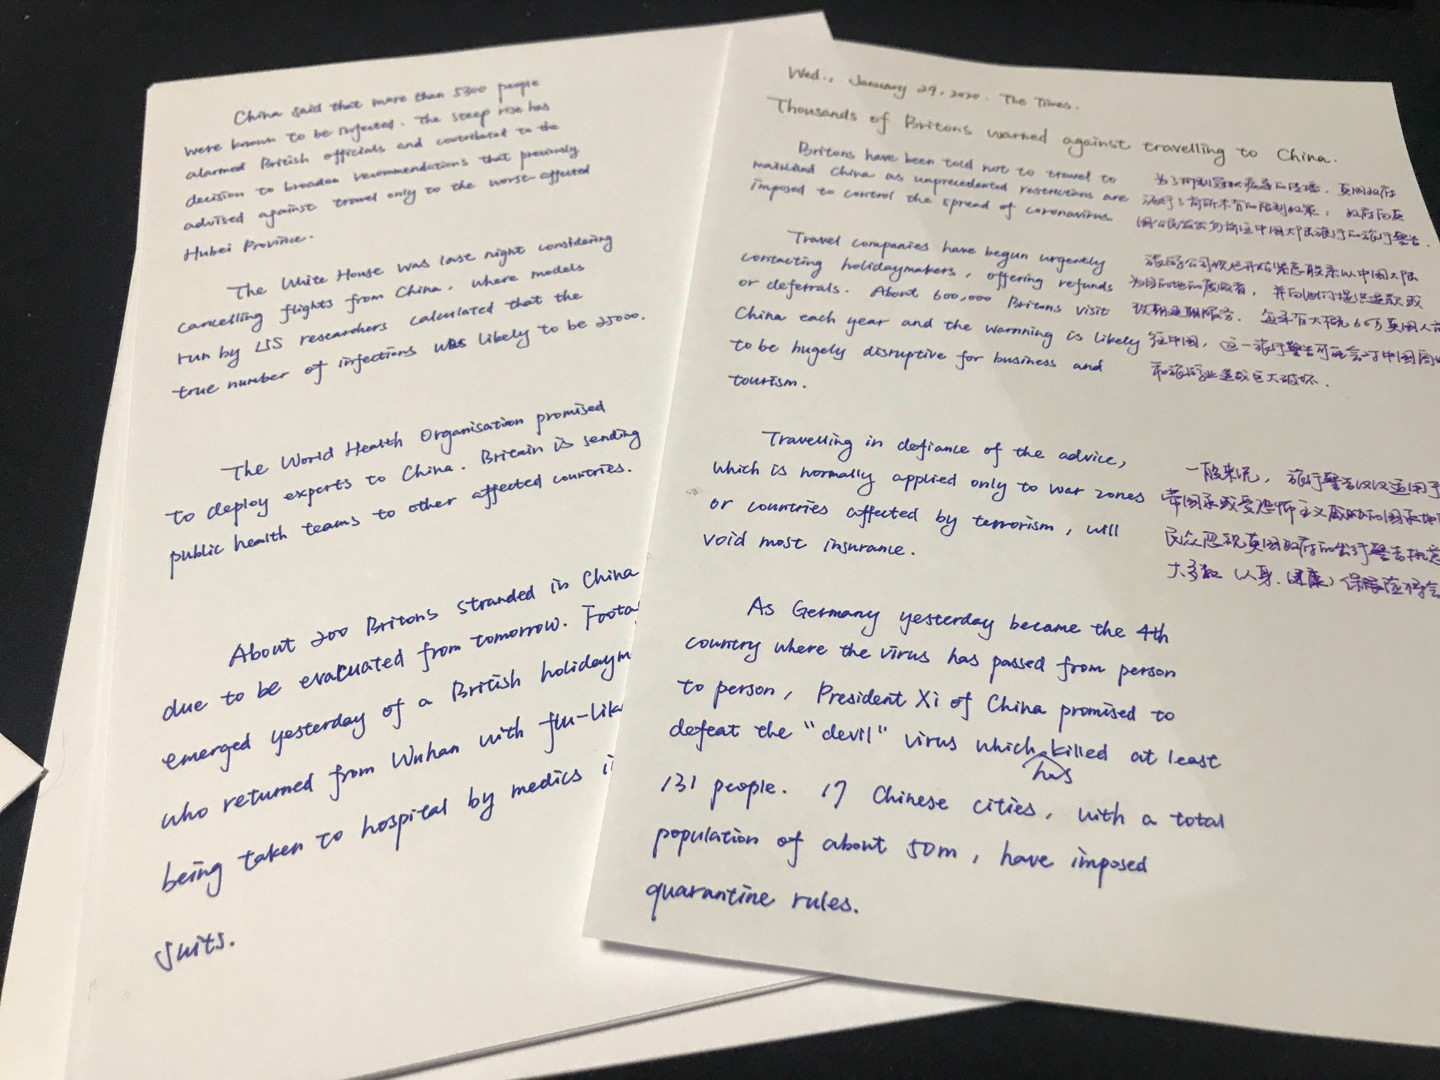 Wed., January 29, 2020. The Times.
Thousands of Britons warned against travelling to China.
Britons have been told not to travel to
mainland China as unprecedented restrictions are
imposed to control the spread of coronavirus.
Travel companies have begun urgently
contacting holidaymakers, offering refunds
or deferrals. About 600,000 Britons visit
China each year and the warnning is likely
to be hugely disruptive for business and
tourism.
Travelling in defiance of the advice,
which is normally applied only to war zones
or countries affected by terrorism, will
void most insurance.
As Germany yesterday became the 4th
country where the virus has passed from person
to person, President Xi of China promised to
defeat the "devil" virus which killed at least
has
131 people. 17 Chinese cities, with a total
population of about 50m, have imposed
quarantine rules.
病毒的传播,英国政府
施行了前所未有的限制政策,政府向英
国公民发出勿前往中国大陆旅行的旅行警告.
旅游公司现已开始紧急联系以中国大陆
为目的地的度假者,并向他们提供退款或
改期延期服务.每年有大概60万英国人前
往中国,这一旅行警告可能会对中国商业
和旅游业造成巨大破坏.
一般来说,旅行警告仅仅适用于
国家或受恐怖主义威胁的国家
民众忽视英国政府的出行警告
大多数(人身、健康)保险
China said that more than 5300 people
were known to be infected. The steep rise has
alarmed British officials and contributed to the
decision to broaden recommendations that previously
advised against travel only to the worst-affected
Hubei Province.
The White House was last night considering
cancelling flights from China, where models
run by US researchers calculated that the
true number of infections was likely to be 25000.
The World Health Organisation promised
to deploy experts to China. Britain is sending
public health teams to other affected countries.
About 200 Britons stranded in China
due to be evacuated from tomorrow. Foota
emerged yesterday of a British holidaym
who returned from Wuhan with flu-lik
being taken to hospital by medics i
suits.